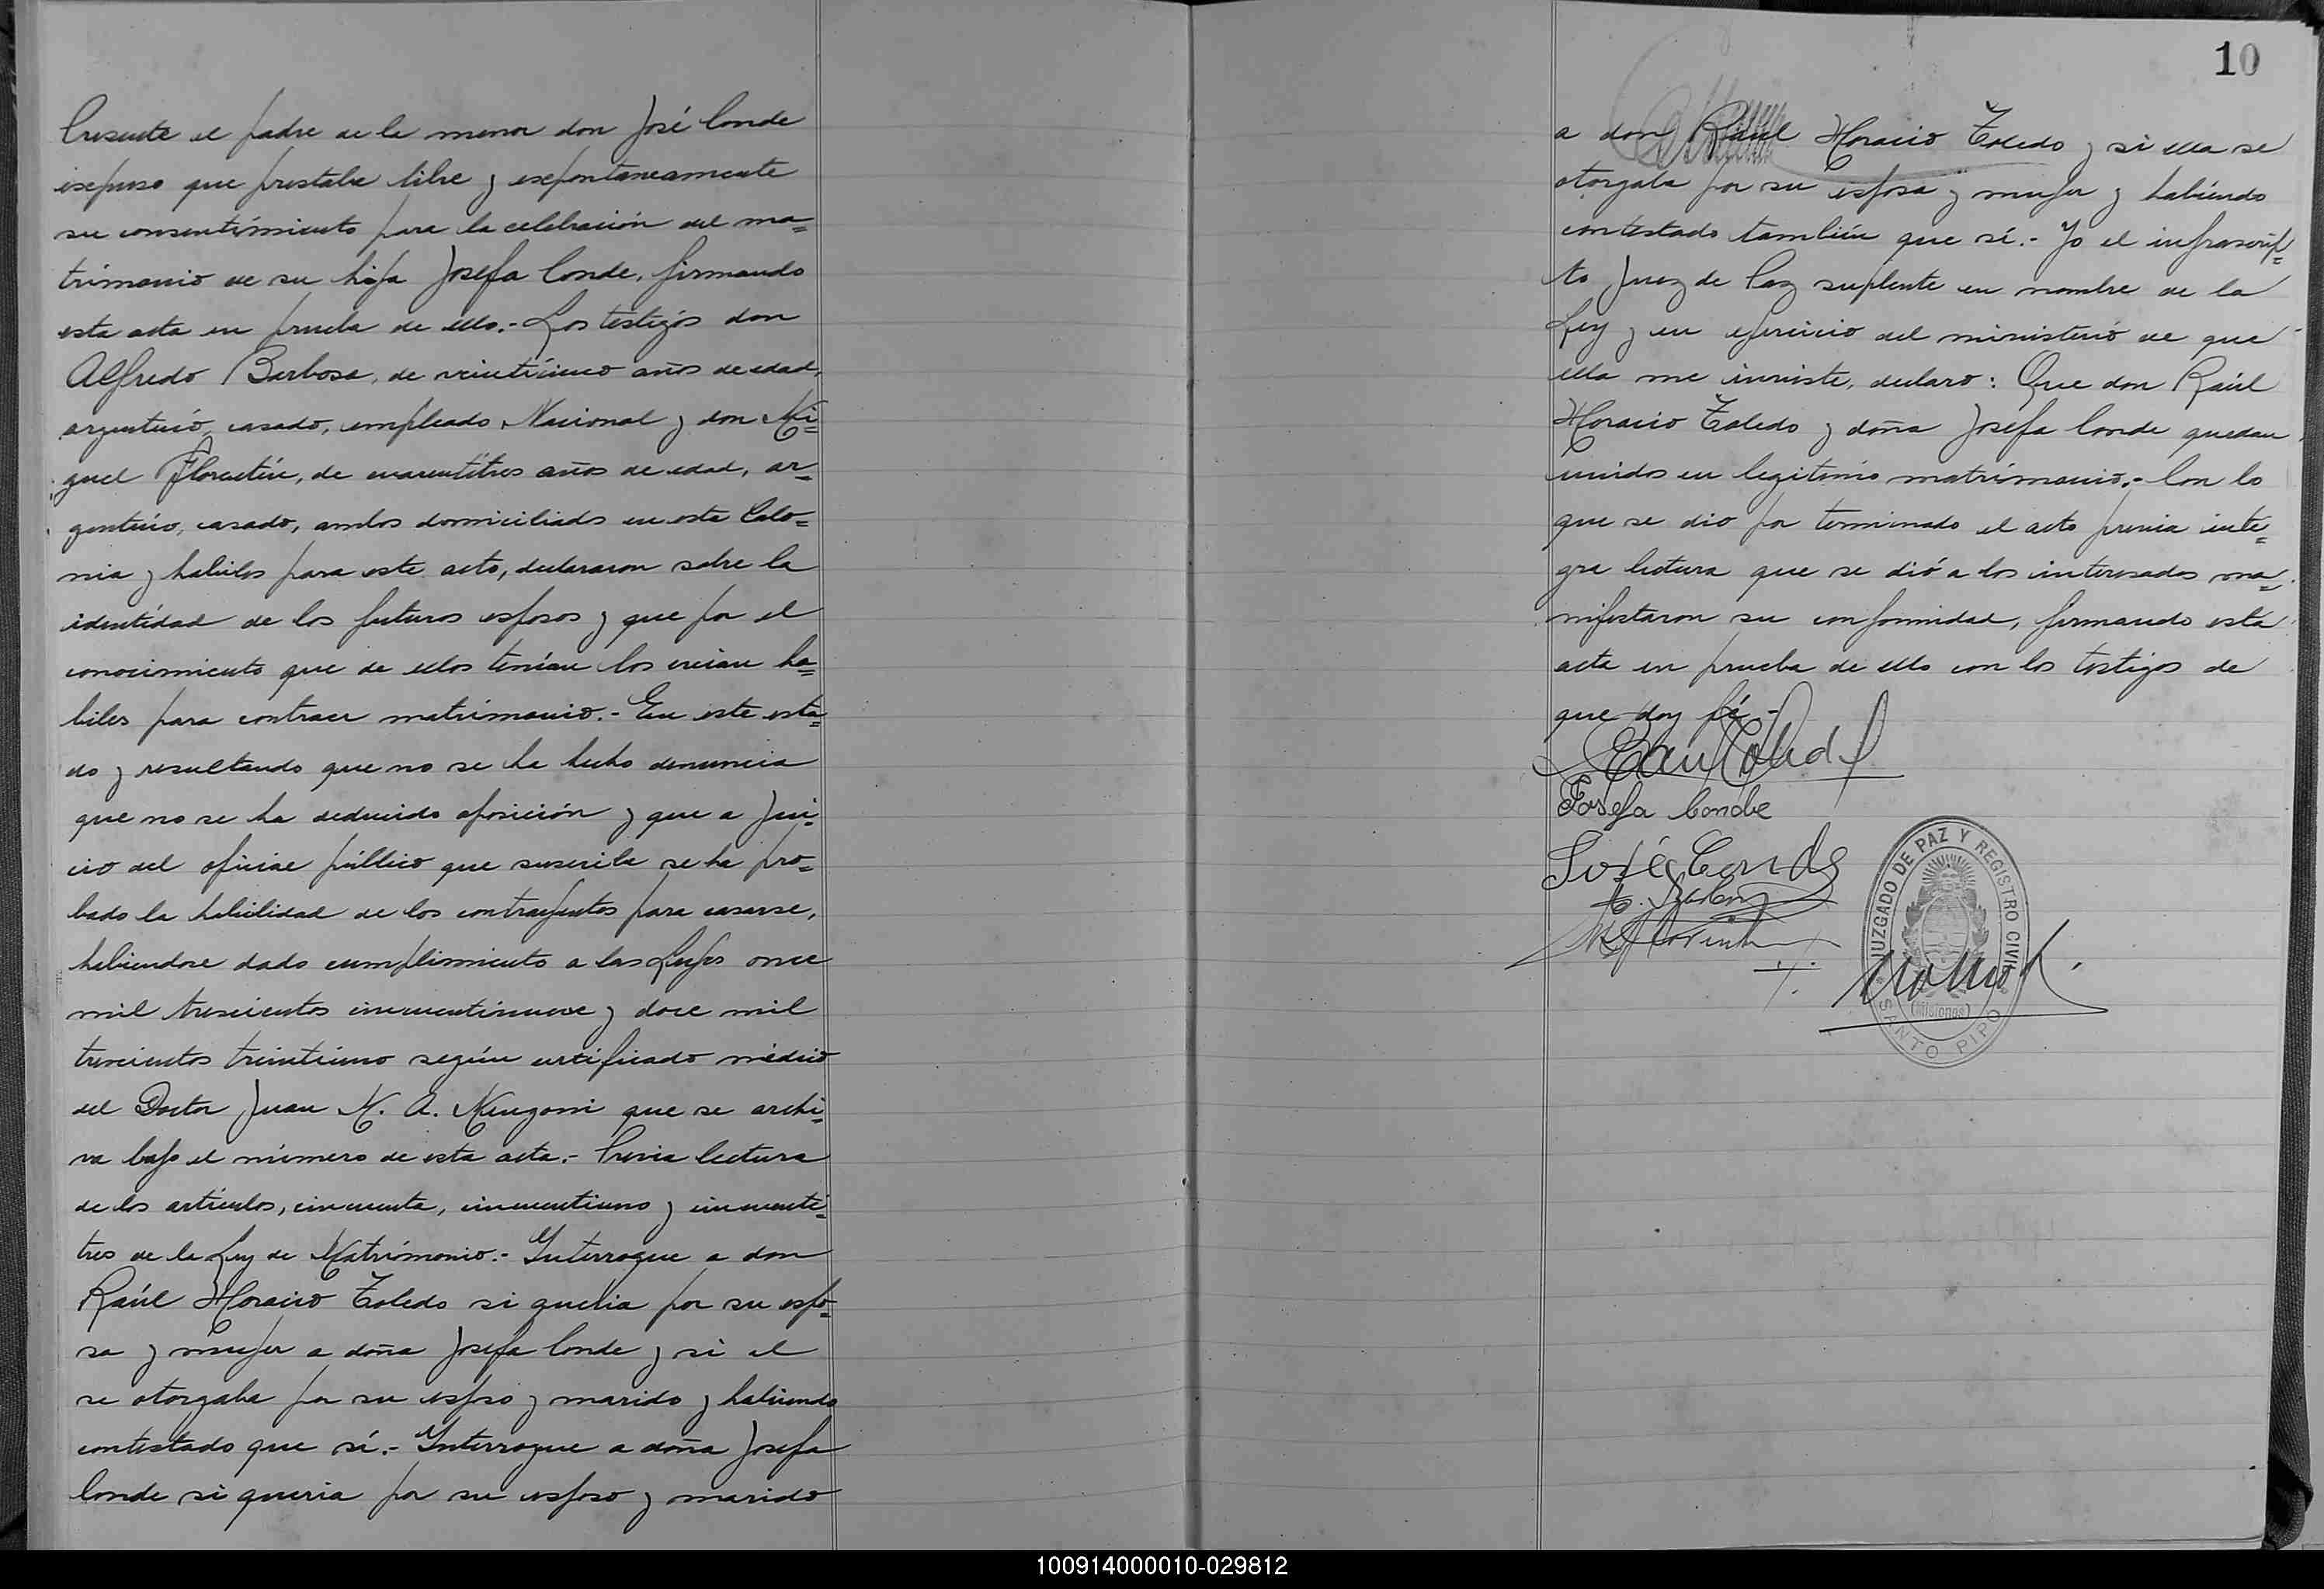 Presente el padre de la menor don José Conde
expuso que prestaba libre y espontaneamente
su consentimiento para la celebración del ma=
trimonio de su hija Josefa Conde, firmando
esta acta en prueba de ello.- Los testigos don
Alfredo Barbosa, de veinticinco años de edad,
argentino, casado, empleado Nacional y don Mi=
guel Florentín, de cuarentitres años de edad, ar=
gentino, casado, ambos domiciliados en esta Colo=
nia y habiles para este acto, declararon sobre la
identidad de los futuros esposos y que por el
conocimiento que de ellos tenían los creian ha=
biles para contraer matrimonio.- En este esta=
do y resultando que no se ha hecho denuncia
que no se ha deducido oposición y que a jui=
cio del oficial público que suscribe se ha pro=
bado la habilidad de los contrayentes para casarse,
habiendose dado cumplimiento a las Leyes once
mil trescientos cincuentinueve y doce mil
trescientos treintiuno según certificado médico
del Doctor Juan M. A. Mengoni que se archi=
va bajo el número de esta acta.- Previa lectura
de los artículos, cincuenta, cincuentiuno y cincuenti=
tres de la Ley de Matrimonio.- Interrogue a don
Raúl Horacio Toledo si queria por su espo=
sa y mujer a doña Josefa Conde y si el
se otorgaba por su esposo y marido y habiendo
contestado que sí.- Interrogue a doña Josefa
Conde si queria por su esposo y marido
10
a don Raúl Horacio Toledo y si ella se
otorgaba por su esposa y mujer y habiendo
contestado también que sí.- Yo el infrascrip=
to Juez de Paz suplente en nombre de la
Ley y en ejercicio del ministerio de que
ella me inviste, declaro: Que don Raúl
Horacio Toledo y doña Josefa Conde quedan
unidos en legitimo matrimonio.- Con lo
que se dio por terminado el acto previa inte=
gra lectura que se dió a los interesados ma=
nifestaron su conformidad, firmando esta
acta en prueba de ello con los testigos de
que doy fé.-
Raul Toledo
Josefa Conde
José Conde
M Florentin
JUZGADO DE PAZ Y REGISTRO CIVIL
(Misiones)
SANTO PIPO
100914000010-029812